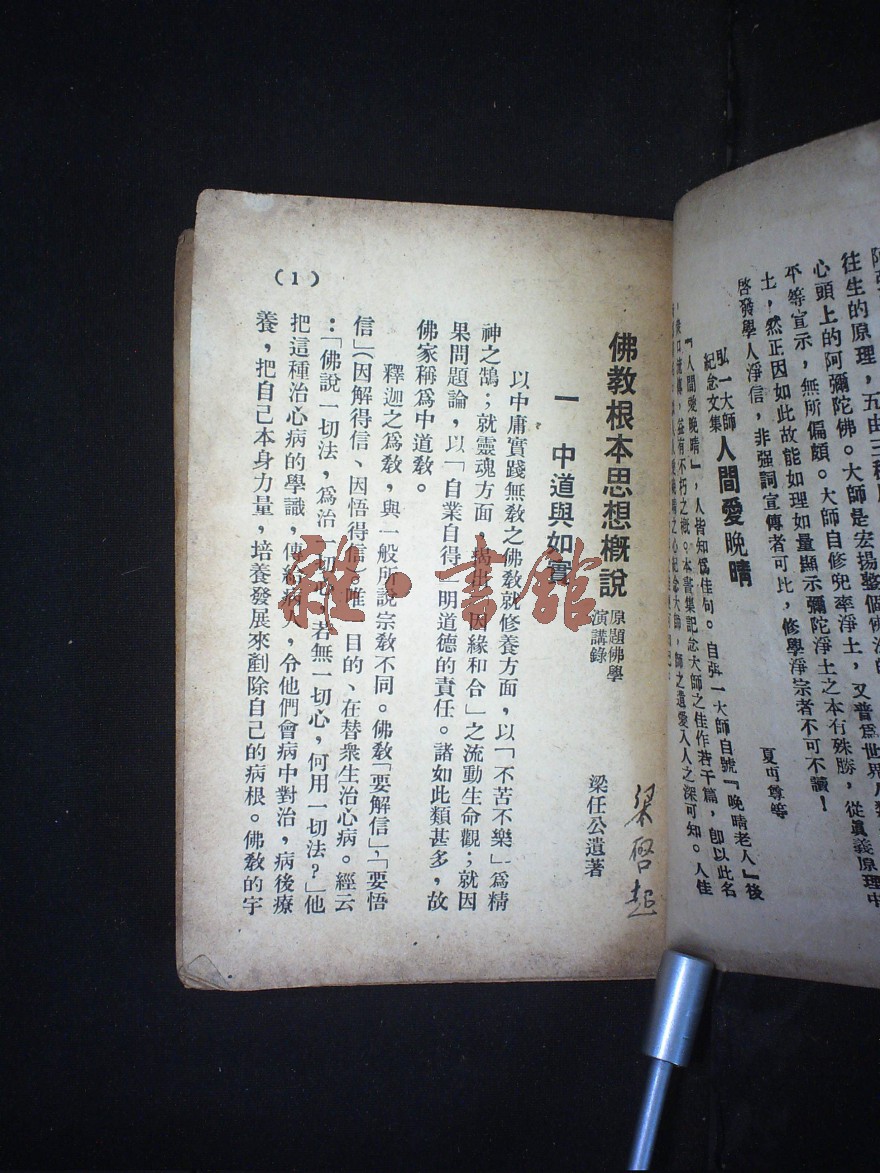 阿彌
往生的原理，五由三種
心頭上的阿彌陀佛。大師是宏揚整個佛法的
平等宣示，無所偏頗。大師自修兜率淨土，又普爲世界人類
土，然正因如此故能如理如量顯示彌陀淨土之本有殊勝，從眞義原理中
啓發學人淨信，非强詞宣傳者可比，修學淨宗者不可不讀！
弘一大師
紀念文集
人間愛晚晴
夏丏尊等
『人間愛晚晴』，人皆知爲佳句。自弘一大師自號『晚晴老人』後
，益有不朽之槪。本書集記念大師之佳作若干篇，卽以此名
紀念大師，師之遺愛入人之深可知。人佳
佛教根本思想槪說
原題佛學
演講錄
梁任公遺著
梁啓超
一　中道與如實
以中庸實踐無敎之佛敎就修養方面，以「不苦不樂」爲精
神之鵠；就靈魂方面，揭批「因緣和合」之流動生命觀；就因
果問題論，以「自業自得」明道德的責任。諸如此類甚多，故
佛家稱爲中道敎。
釋迦之爲敎，與一般所說宗敎不同。佛敎「要解信」，「要悟
信」（因解得信、因悟得信）唯一目的、在替衆生治心病。經云
：「佛說一切法，爲治一切心，若無一切心，何用一切法？」他
把這種治心病的學識，傳給病人，令他們會病中對治，病後療
養，把自己本身力量，培養發展來剷除自己的病根。佛敎的宇
(1)
雜·書館